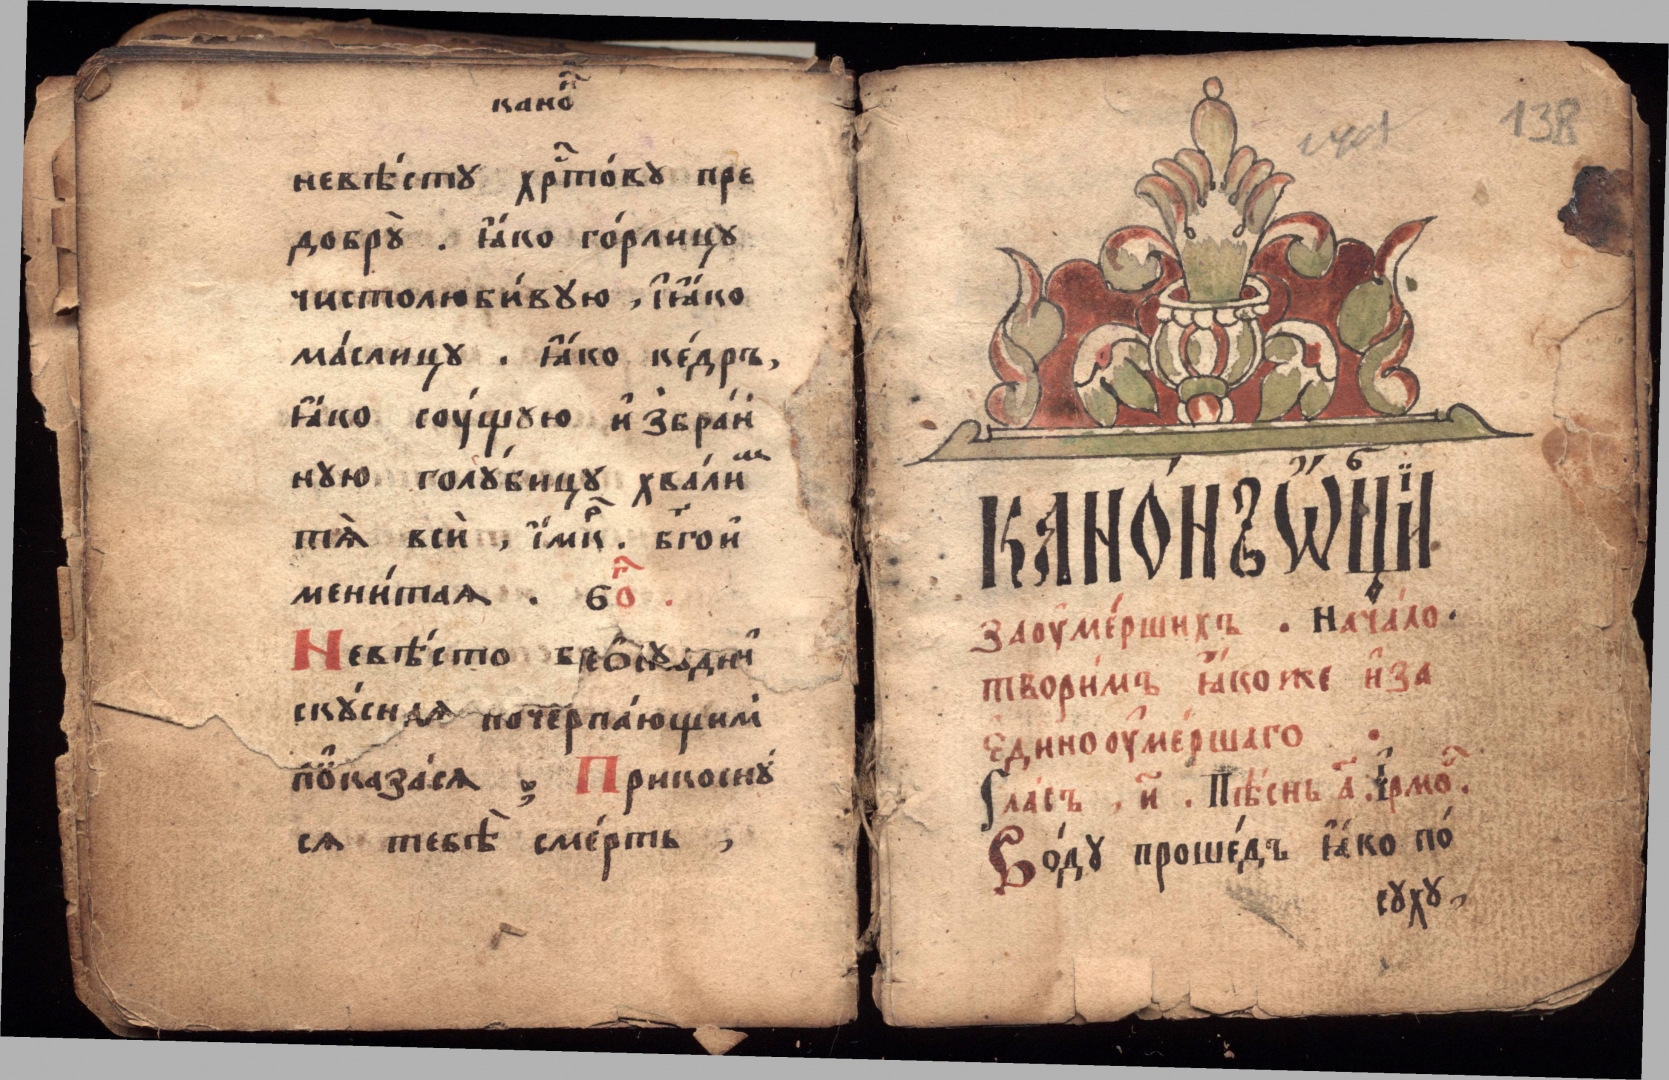 кано҇н
невѣ́сту хрⷭ҇то́ву пре
добрꙋ̀ . ꙗ҆́ко го́рлицу
чистолюби́вꙋю , и҆ ꙗ҆́ко
ма́слицꙋ . ꙗ҆́ко ке́дръ,
ꙗ҆́ко сꙋ́щꙋю и҆збра́н
нꙋю голꙋ́бицꙋ хвали́м
тѧ̀ всѝ ,
мени́таѧ .
Невѣ́сто
скꙋ́снаѧ почерпа́ющим
показа́сѧ ; Прикоснꙋ́
сѧ тебѣ̀ сме́рть ,
138
КАНО́НЪ Ѡ҆́БЩИ
за оу҆ме́ршихъ . Нача́ло .
твори́мъ ꙗ҆́коже и҆ за
единооу҆ме́ршаго .
Гла́съ , и҃ . Пѣ́снь а҃ . і҆рмо́с .
Во́дꙋ проше́дъ ꙗ҆́ко по́
сꙋхꙋ ,